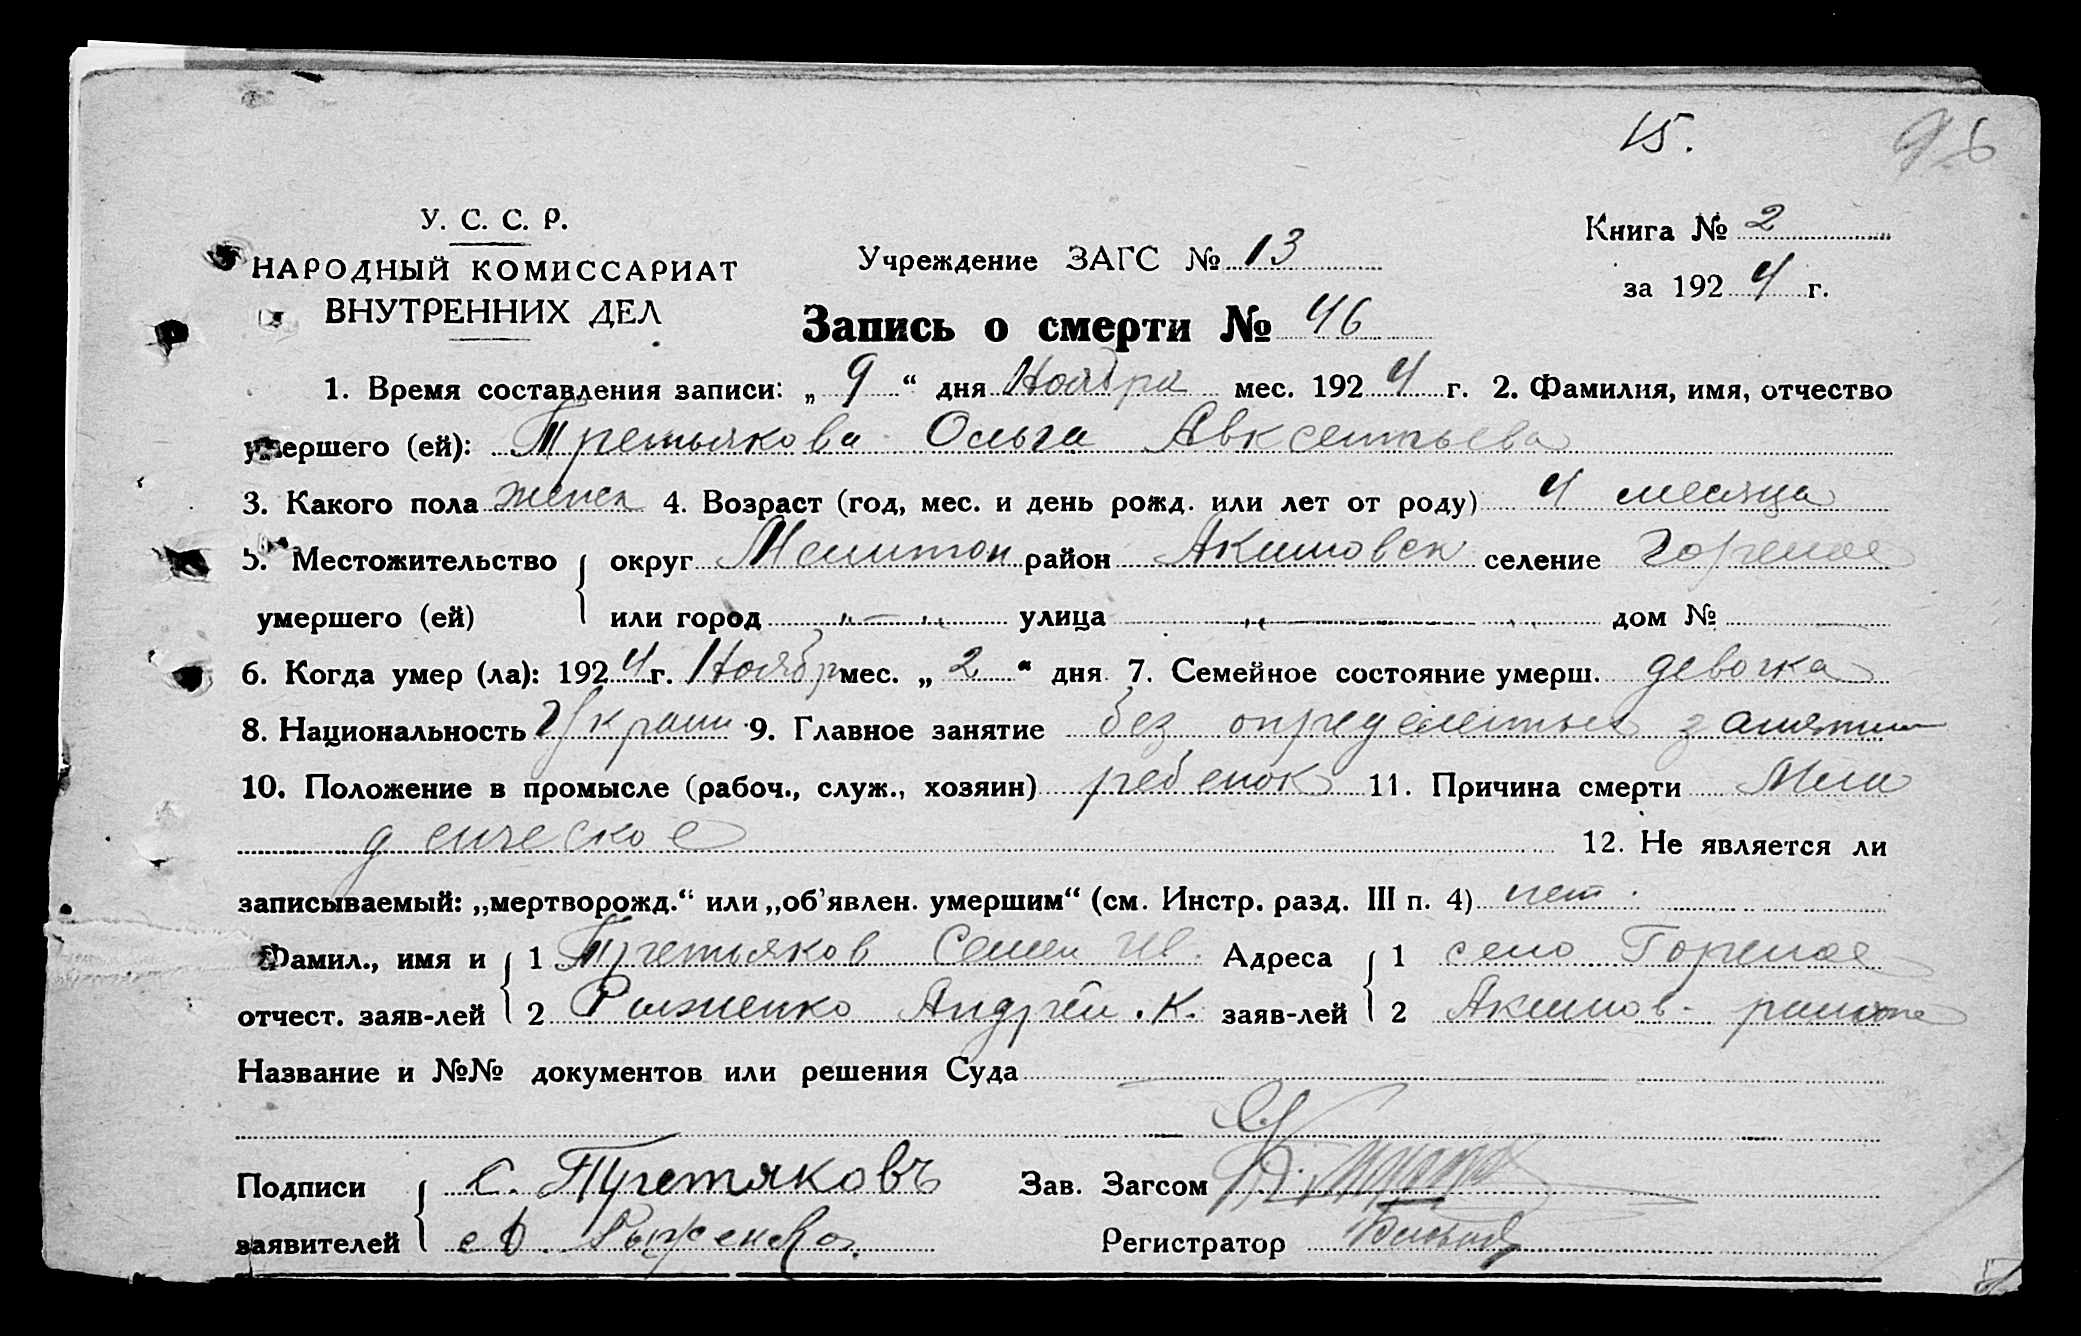 15. 96
У. С. С. Р.
НАРОДНЫЙ КОМИССАРИАТ
ВНУТРЕННИХ ДЕЛ
Учреждение ЗАГС № 13
Книга № 2
за 1924 г.
Запись о смерти № 46
1. Время составления записи: „ 9 “ дня Ноября мес. 1924 г. 2. Фамилия, имя, отчество
умершего (ей): Третьякова Ольга Авксентьева
3. Какого пола женск 4. Возраст (год, мес. и день рожд. или лет от роду) 4 месяца
5. Местожительство округ Мелитоп район Акимовск селение Горелое
умершего (ей) или город „ — „ улица „ — „ дом № —
6. Когда умер (ла): 1924 г. Ноябр мес. „ 2 “ дня 7. Семейное состояние умерш. девочка
8. Национальность Украин 9. Главное занятие без определетых занятии
10. Положение в промысле (рабоч., служ., хозяин) ребенок 11. Причина смерти Мла
денческое 12. Не является ли
записываемый: „мертворожд.“ или „об’явлен. умершим“ (см. Инстр. разд. III п. 4) нет.
Фамил., имя и 1 Третьяков Семен Ив. Адреса 1 село Горелое
отчест. заяв-лей 2 Рыженко Андрей К. заяв-лей 2 Акимов. района
Название и №№ документов или решения Суда
Подписи С. Третяковъ Зав. Загсом
заявителей А. Рыженко. Регистратор